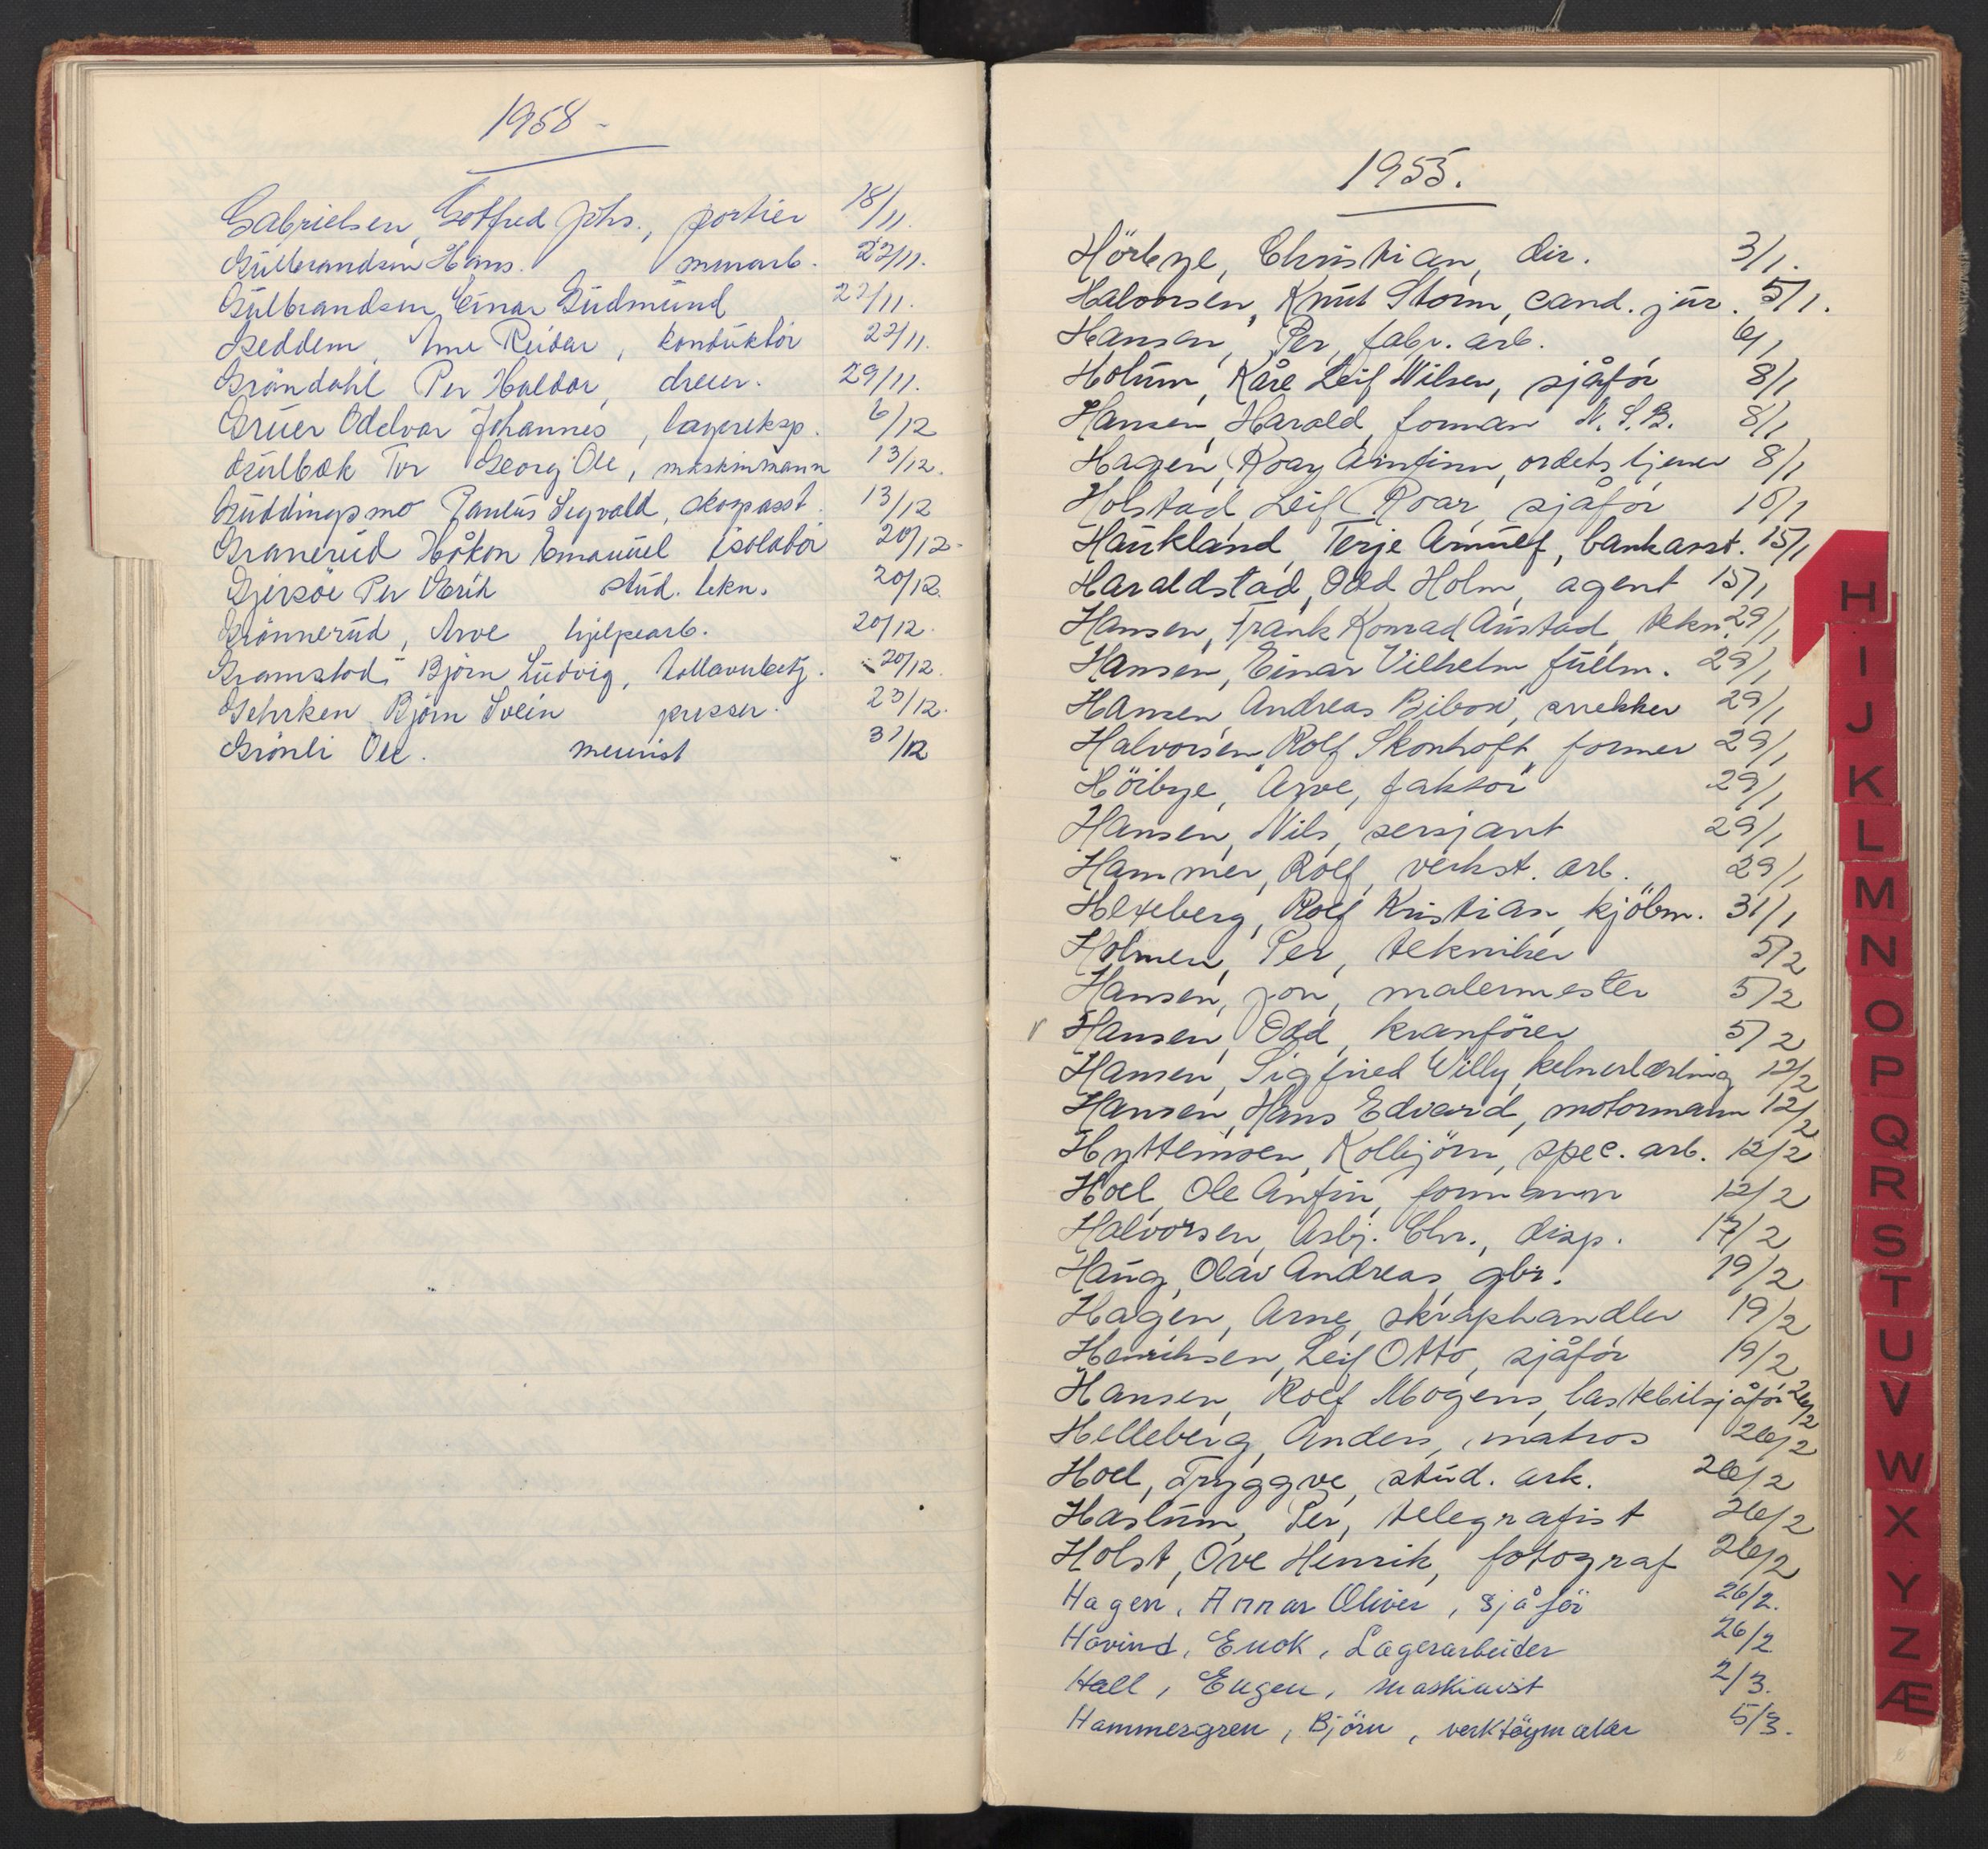 1958 -
Gabrielsen, Gotfred Johs., portier 18/11.
Gulbrandsen Hans. murarb. 22/11.
Gulbrandsen Einar Gudmund 22/11.
Geddem, Arne Reidar, konduktör 22/11.
Gröndahl Per Haldor, dreier. 29/11.
Gruer Oddvar Johannes, lagereksp. 6/12
Gulbæk Tor Georg Ole, maskinmann 13/12.
Guddingsmo Paulus Sigvald, skogsasst. 13/12
Granerud Håkon Emanuel isolatör 20/12-
Gjersöe Per Erik stud. tekn. 20/12.
Grönnerud, Arve hjelpearb. 20/12.
Gramstad, Björn Ludvig, 20/12.
Gehrken, Björn Svein presser. 23/12.
Grönli Ole. meierist 31/12
1955.
Hörbye, Christian, dir. 3/1.
Halvorsen, Knut Storm, cand. jur. 5/1.
Hansen, Per, fabr. arb. 6/1
Holum, Kåre Leif Wilsen, sjåför 8/1
Hansen, Harald, forman N.S.B. 8/1
Hagen, Roay Arnfinn, ordets tjener 8/1
Holstad Leif Roar, sjåför 15/1
Haukland, Terje Arnulf, bankasst. 15/1
Haraldstad, Odd Holm, agent 15/1
Hansen, Frank Konrad Austad, tekn. 29/1
Hansen, Einar Vilhelm fullm. 29/1
Hansen Andreas Bibow, snekker 29/1
Halvorsen Rolf Skonhoft, former 29/1
Höibye, Arve, faktor 29/1
Hansen, Nils, sersjant 29/1
Hammer, Rolf, verkst. arb. 29/1
Hexeberg, Rolf Kristian, kjöbm. 31/1
Holmen, Per, tekniker 5/2
Hansen, Jon, malermester 5/2
Hansen, Odd, kranförer 5/2
Hansen, Sigfried Willy, kelnerlærling 12/2
Hansen, Hans Edvard, motormann 12/2
Hyttemoen, Kolbjörn, spec. arb. 12/2
Hoel, Ole Anfin, formann 12/2
Halvorsen, Asbj. Chr., disp. 17/2
Haug, Olav Andreas, gbr. 19/2
Hagen, Arne, skraphandler 19/2
Henriksen, Leif Otto, sjåför 19/2
Hansen, Rolf Mogens, lastebilsjåför 26/2
Helleberg, Anders, matros 26/2
Hoel, Tryggve, stud. ark. 26/2
Haslum, Per, telegrafist 26/2
Holst, Ove Henrik, fotograf 26/2
Hagen, Annar Oliver, sjåför 26/2.
Hovind, Enok, Lagerarbeider 26/2
Hall, Eugen, maskinist 2/3.
Hammergren, Björn, verktöymaker 5/3.
H
I
J
K
L
M
N
O
P
Q
R
S
T
U
V
W
X
Y
Z
Æ